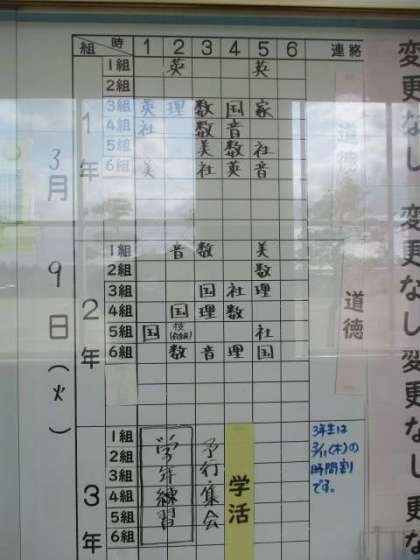 組 時 1 2 3 4 5 6 連絡
3月9日(火)
1年
1組 英 英
2組
3組 英 理 数 国 家
4組 社 数 音
5組 美 数 社
6組 美 社 英 音
道徳
2年
1組 音 数 美
2組 数
3組 国 社 理
4組 国 理 数
5組 国 技 社
6組 数 音 理 国
道徳
3年
1組
2組
3組
4組
5組
6組
学年練習
予行・集会
学活
3年生は
3/11(木)の
時間割
です。
変更なし 変更なし 変更な